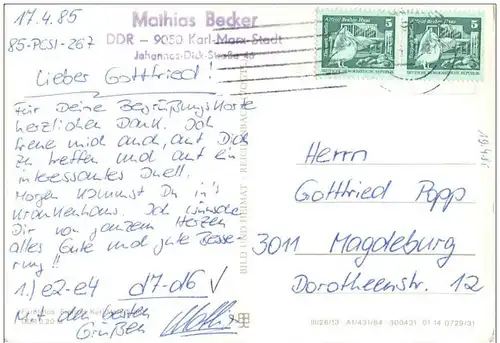 17.4.85
85-PCSI-267
Mathias Becker
DDR - 9050 Karl-Marx-Stadt
Johannes-Dick-Straße 46
Lieber Gottfried!
Für Deine Begrüßungskarte
herzlichen Dank. Ich
freue mich auch, auf Dich
zu treffen und auf ein
interessantes Duell.
Morgen kommst Du in's
Krankenhaus. Ich wünsche
Dir von ganzem Herzen
alles Gute und gute Besse-
rung!!
1.) e2-e4 d7-d6
Mit den besten
Grüßen
BILD UND HEIMAT · REICHENBACH
5
5
Herrn
Gottfried Popp
3011 Magdeburg
Dorotheenstr. 12
III/26/13 A1/431/84 300431 01 14 0729/31